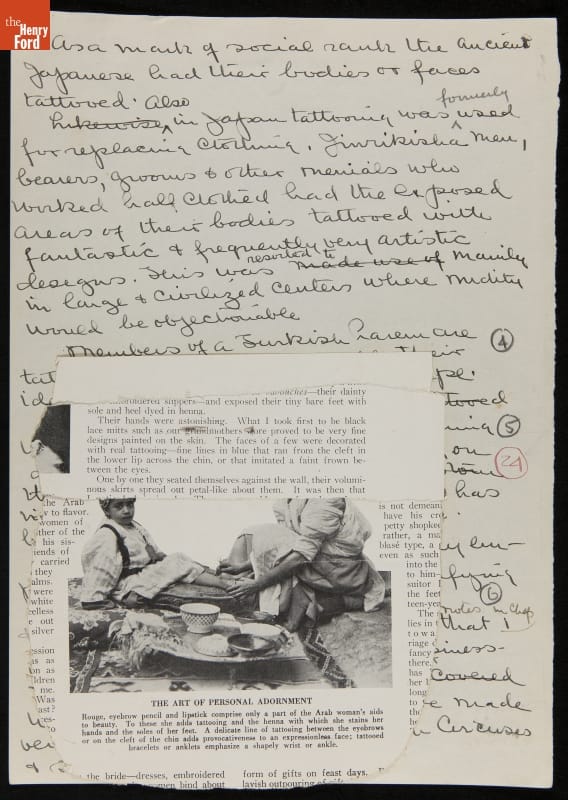 the
Henry
Ford
As a mark of social rank the ancient
Japanese had their bodies or faces
tattooed. Also
formerly
Likewise, in Japan tattooing was used
for replacing clothing. Jinrikisha men,
bearers, grooms & other menials who
worked half clothed had the exposed
areas of their bodies tattooed with
fantastic & frequently very artistic
resorted to
designs. This was made use of mainly
in large & civilized centers where nudity
would be objectionable
Members of a Turkish harem are
4
their
tat
ide
tooed
5
on
24
has
fying
6
notes in Chap
that I
siness-
covered
e made
Circuses
ver
&
babouches—their dainty
embroidered slippers—and exposed their tiny bare feet with
sole and heel dyed in henna.
Their hands were astonishing. What I took first to be black
lace mitts such as our grandmothers wore proved to be very fine
designs painted on the skin. The faces of a few were decorated
with real tattooing—fine lines in blue that ran from the cleft in
the lower lip across the chin, or that imitated a faint frown be-
tween the eyes.
One by one they seated themselves against the wall, their volumi-
nous skirts spread out petal-like about them. It was then that
the Arab
y to flavor.
women of
ther of the
his sis-
iends of
carried
they
alms.
were
white
celless
e out
silver
ession
is as
on as
ldren
me.
Was
ast?
is not demean
have his cr
petty shopke
rather, a ma
blasé type, a
even as such
into the
to him-
suitor
the feet
teen-yea
The
lies in
to wa
riage
fancy
there.
has
her
long
to
THE ART OF PERSONAL ADORNMENT
Rouge, eyebrow pencil and lipstick comprise only a part of the Arab woman's aids
to beauty. To these she adds tattooing and the henna with which she stains her
hands and the soles of her feet. A delicate line of tattooing between the eyebrows
or on the cleft of the chin adds provocativeness to an expressionless face; tattooed
bracelets or anklets emphasize a shapely wrist or ankle.
the bride—dresses, embroidered
men bind about
form of gifts on feast days.
lavish outpouring of